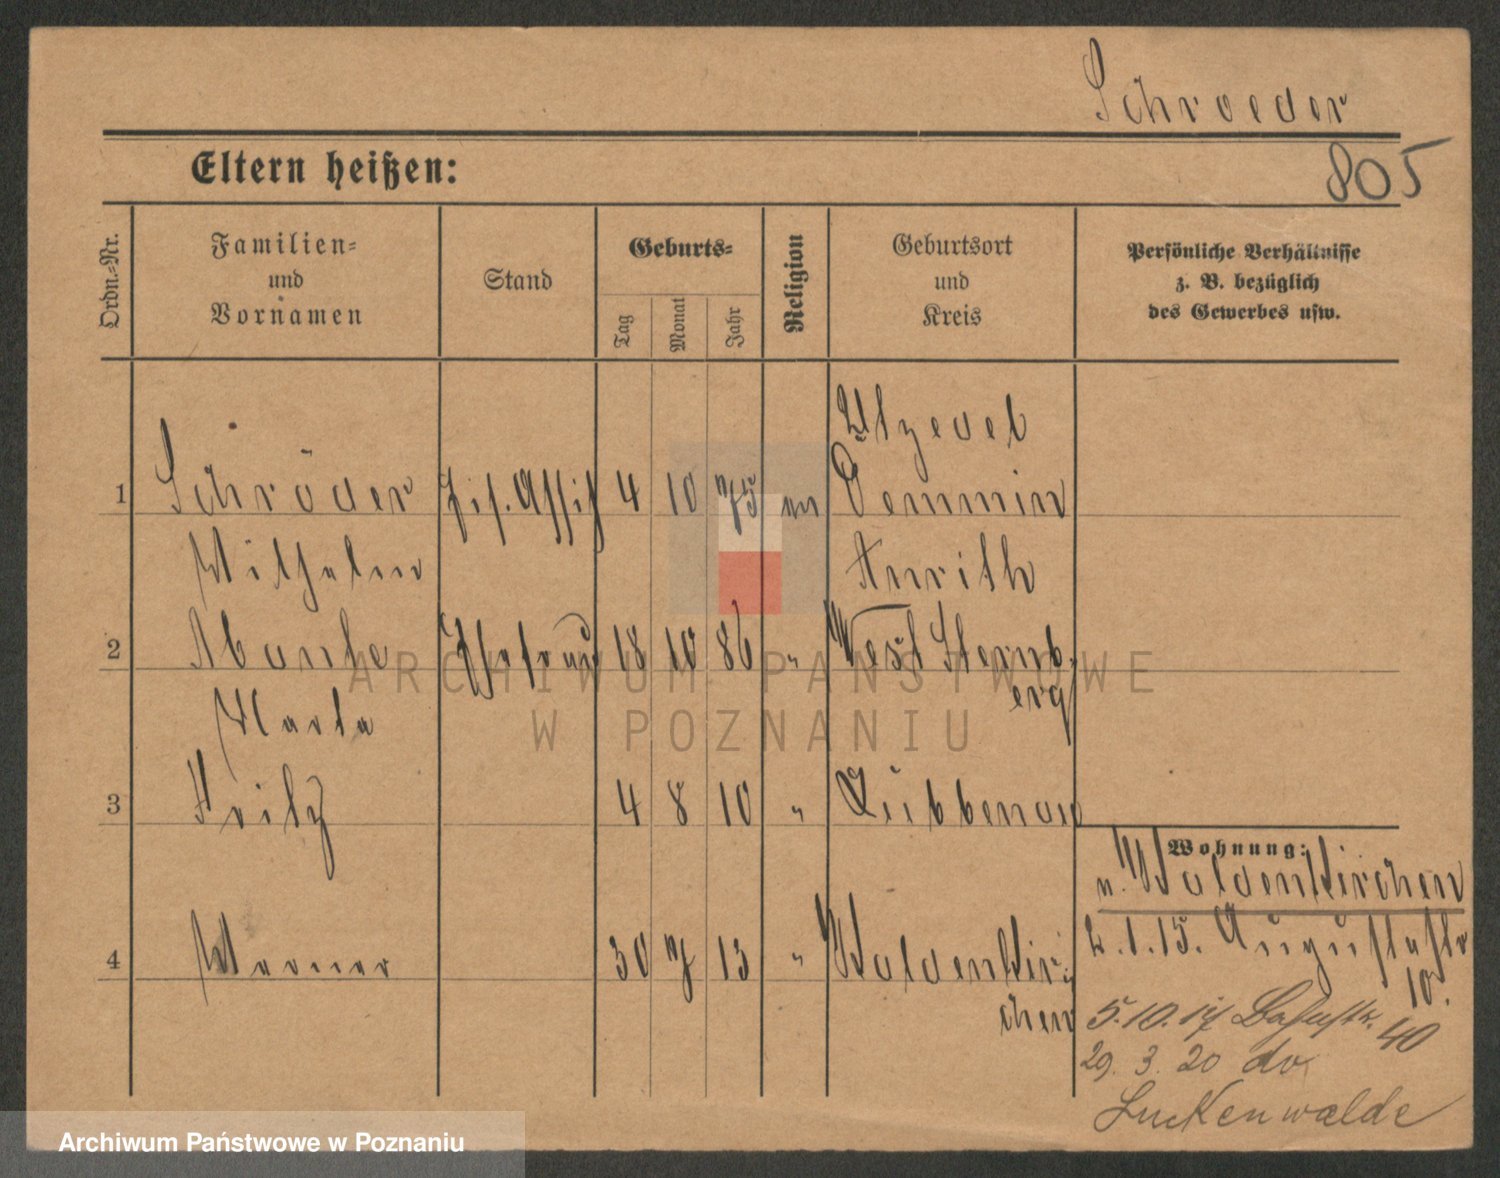 Schroeder
Eltern heißen:
805
Ordn.-Nr.
Familien-
und
Vornamen
Stand
Geburts-
Tag
Monat
Jahr
Religion
Geburtsort
und
Kreis
Persönliche Verhältnisse
z. B. bezüglich
des Gewerbes usw.
Utzedel
1 Schröder 4 10 75 ev Demmin
Wilhelm
2 Ehefrau 18 10 86 " West Sternb-
erg
Marta
3 Fritz 4 8 10 " Lübbenau
Wohnung:
n. Waldenkirchen
4 Werner 30 7 13 " Waldenkir-
chen
2.1.15. Augustastr
10.
5.10.17 40
29.3.20 do
Luckenwalde
ARCHIWUM PAŃSTWOWE
W POZNANIU
Archiwum Państwowe w Poznaniu